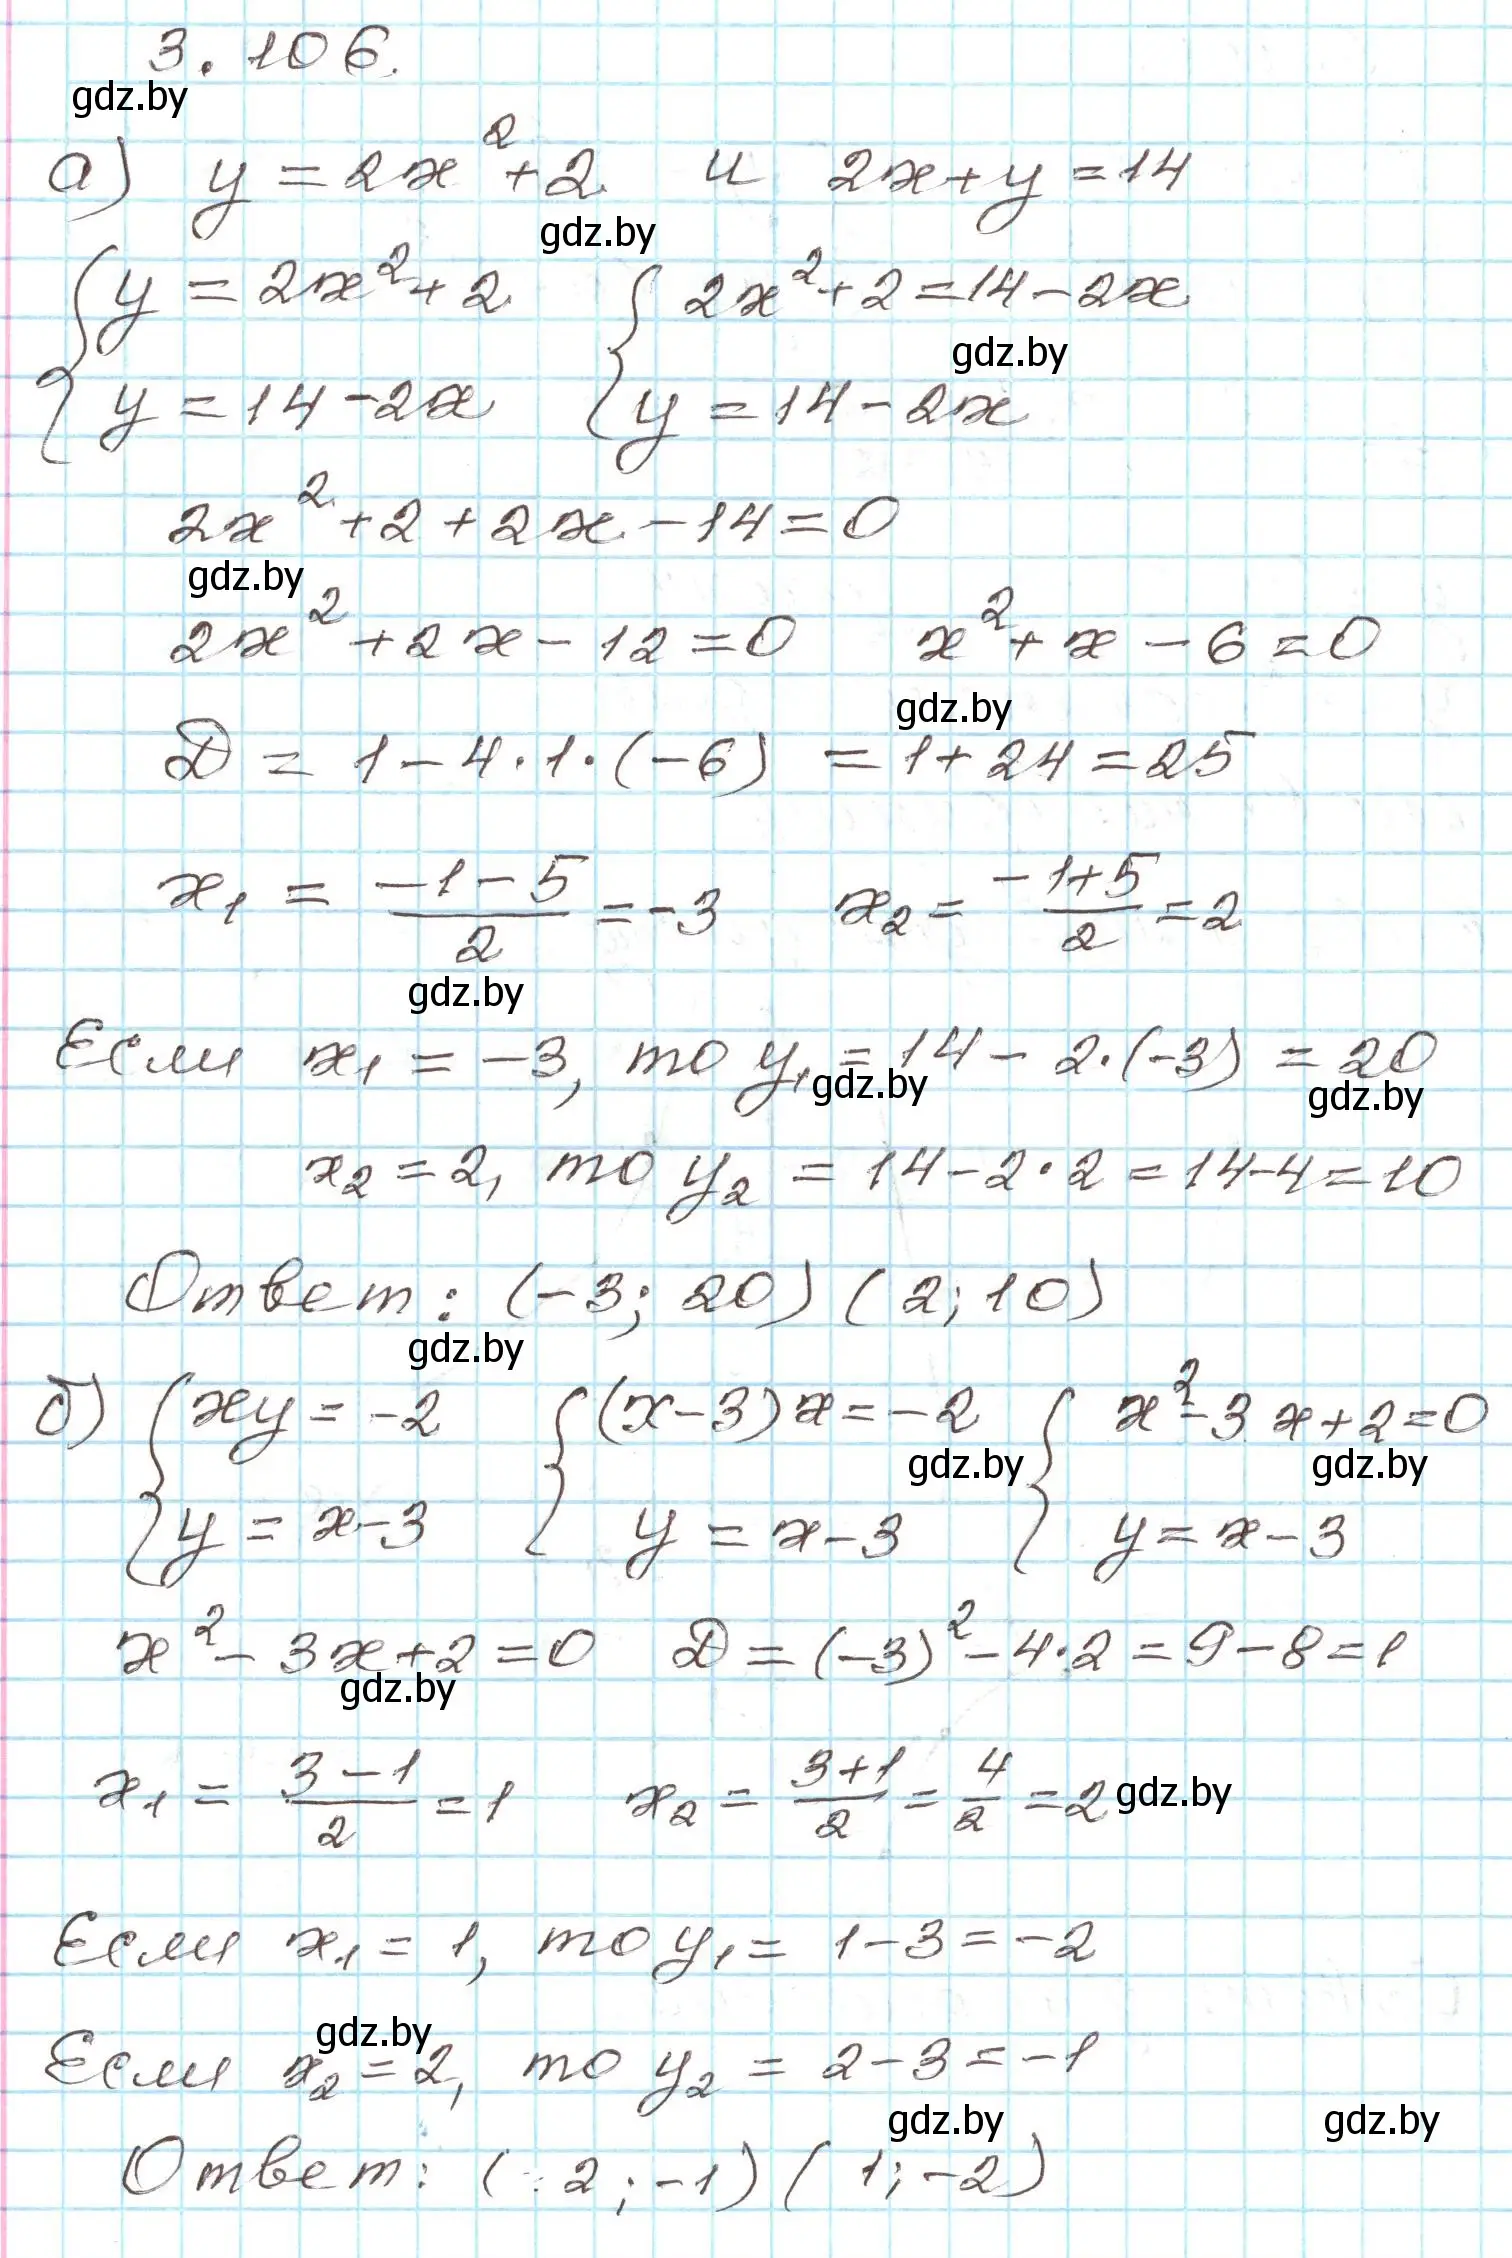 3.106.
gdz.by
а) y = 2x² + 2 и 2x + y = 14
gdz.by
{ y = 2x² + 2 { 2x² + 2 = 14 - 2x
gdz.by
{ y = 14 - 2x { y = 14 - 2x
2x² + 2 + 2x - 14 = 0
gdz.by
2x² + 2x - 12 = 0 x² + x - 6 = 0
gdz.by
D = 1 - 4·1·(-6) = 1 + 24 = 25
x₁ = (-1-5)/2 = -3 x₂ = (-1+5)/2 = 2
gdz.by
Если x₁ = -3, то y₁ = 14 - 2·(-3) = 20
gdz.by gdz.by
x₂ = 2, то y₂ = 14 - 2·2 = 14 - 4 = 10
Ответ: (-3; 20) (2; 10)
gdz.by
б) { xy = -2 { (x-3)x = -2 { x² - 3x + 2 = 0
gdz.by gdz.by
{ y = x - 3 { y = x - 3 { y = x - 3
x² - 3x + 2 = 0 D = (-3)² - 4·2 = 9 - 8 = 1
gdz.by
x₁ = (3-1)/2 = 1 x₂ = (3+1)/2 = 4/2 = 2 gdz.by
Если x₁ = 1, то y₁ = 1 - 3 = -2
gdz.by
Если x₂ = 2, то y₂ = 2 - 3 = -1
gdz.by gdz.by
Ответ: (2; -1) (1; -2)